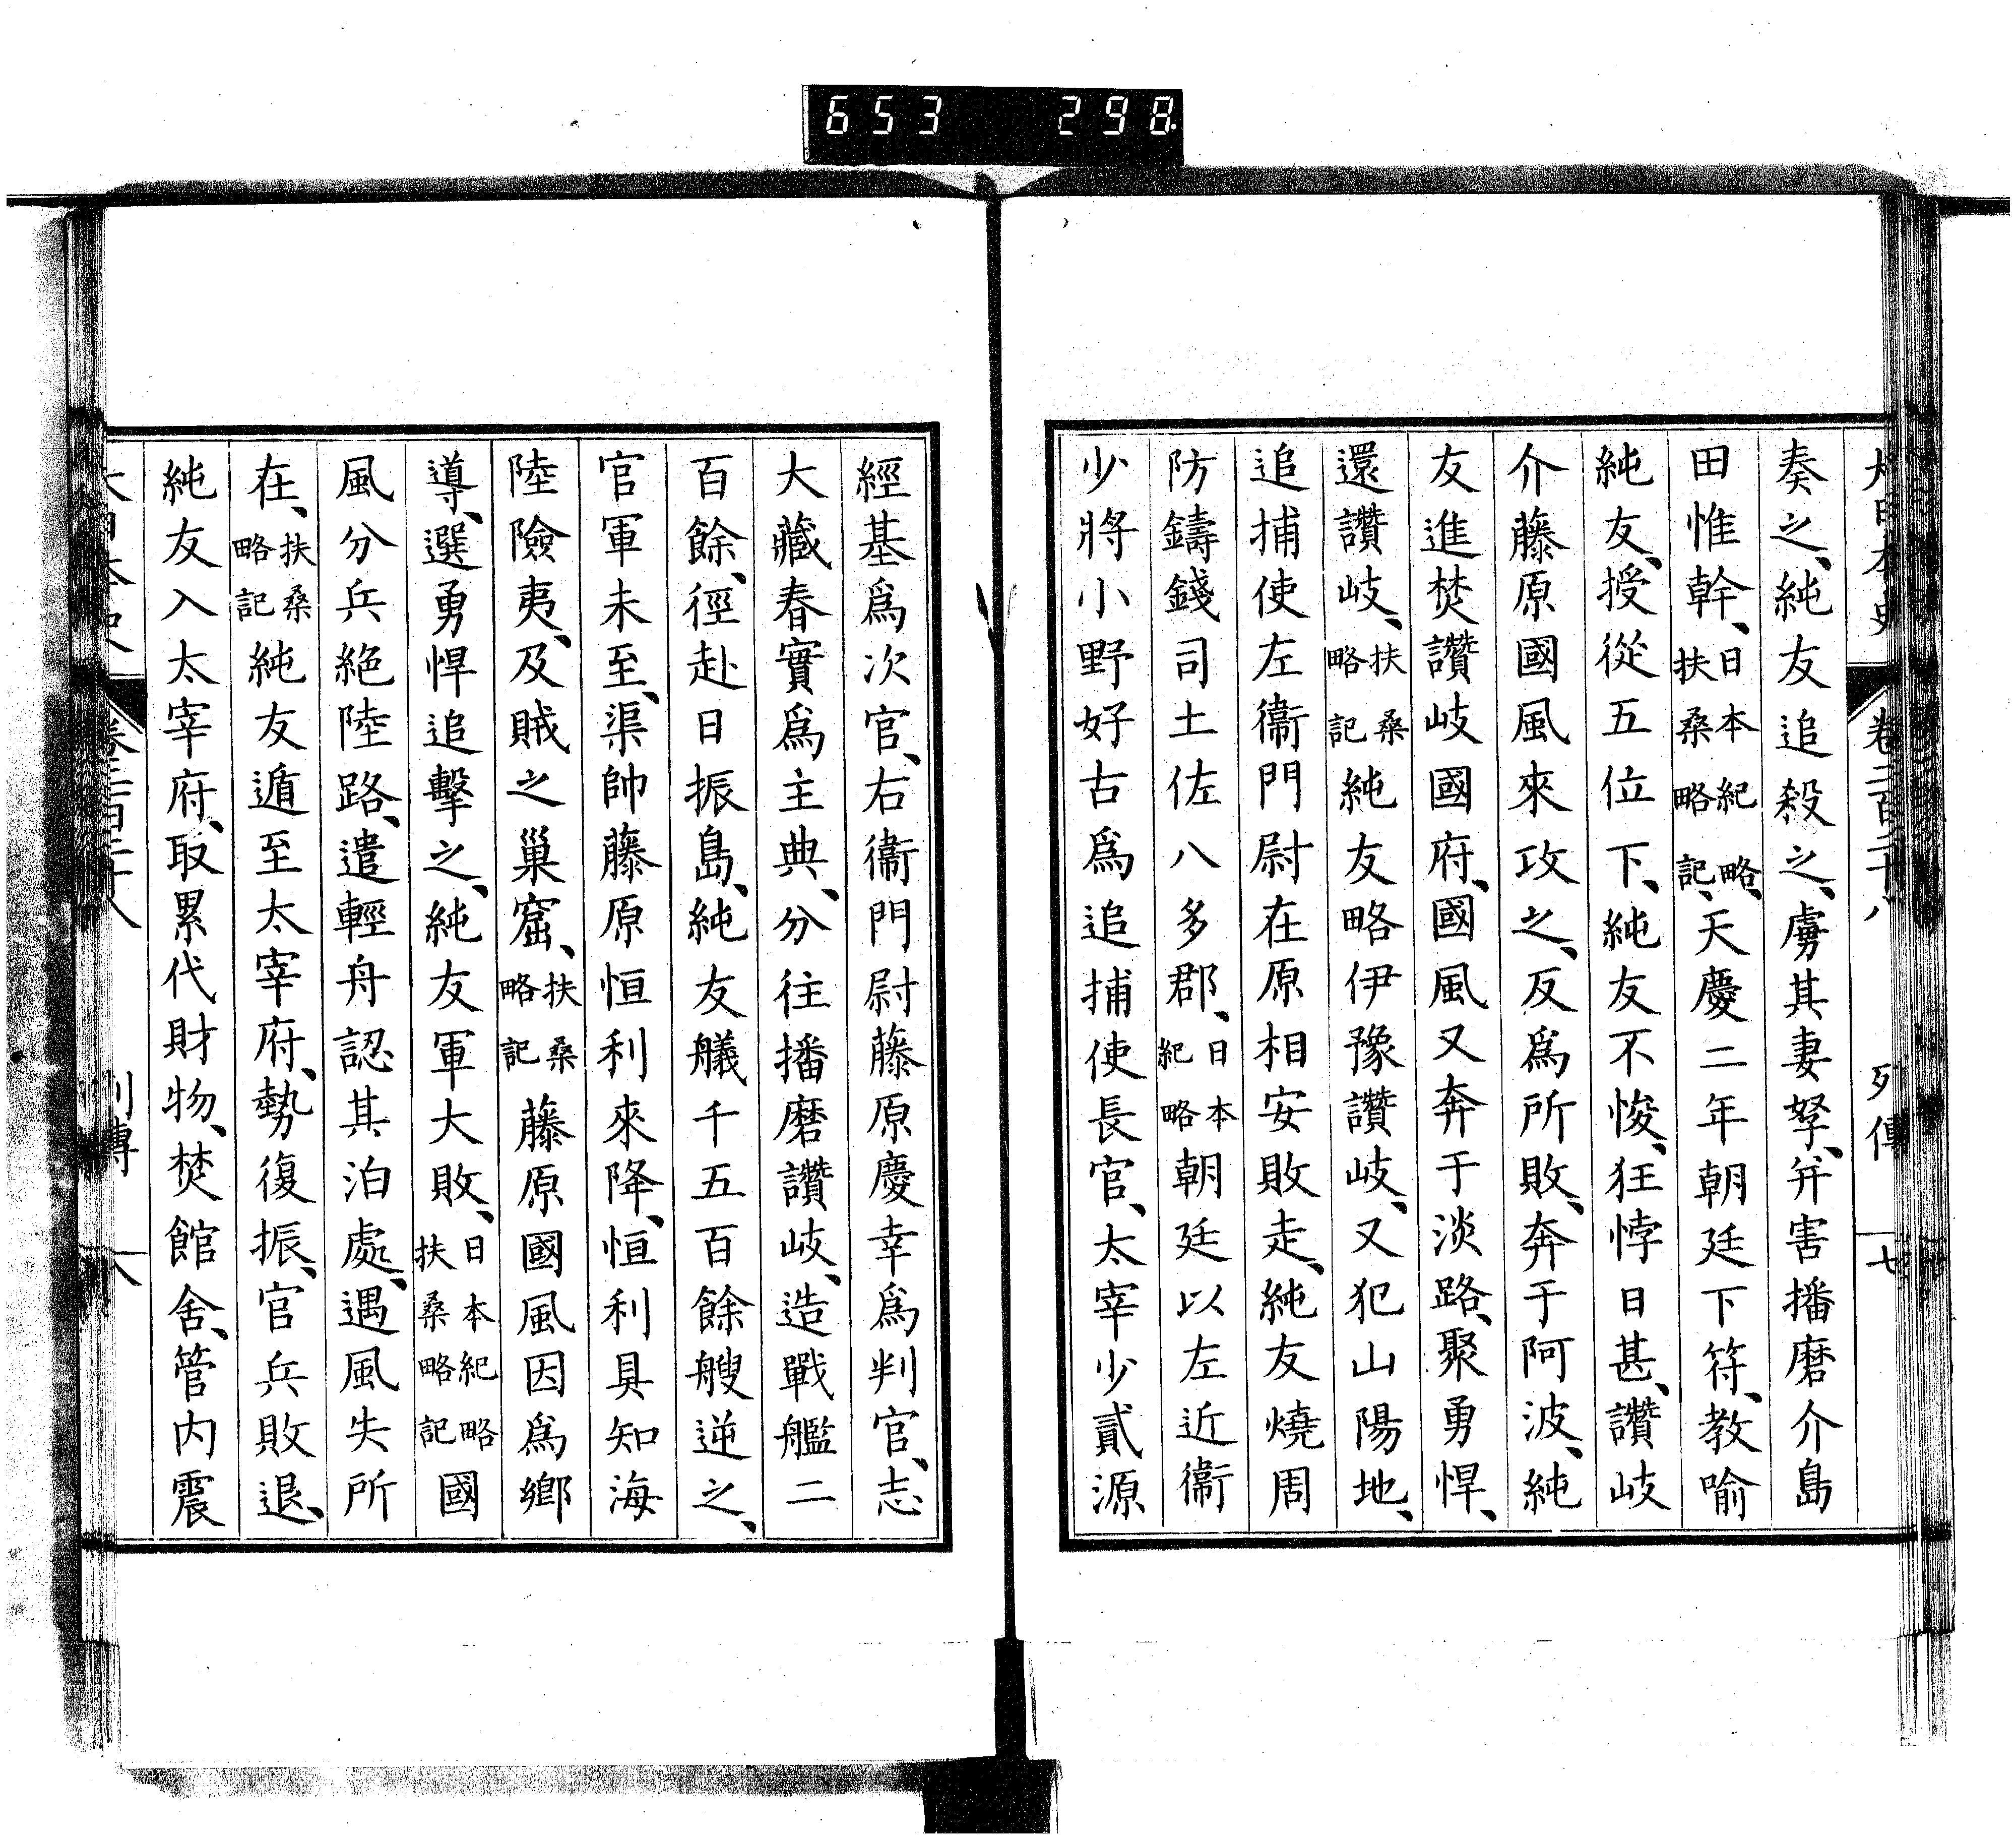 653 298
大日本史 卷二百二十八 列傳 七
奏之、純友追殺之、虜其妻孥、幷害播磨介島
田惟幹、日本紀略、扶桑略記、天慶二年朝廷下符、教喻
純友、授從五位下、純友不悛、狂悖日甚、讚岐
介藤原國風來攻之、反爲所敗、奔于阿波、純
友進焚讚岐國府、國風又奔于淡路、聚勇悍、
還讚岐、扶桑略記純友略伊豫讚岐、又犯山陽地、
追捕使左衞門尉在原相安敗走、純友燒周
防鑄錢司土佐八多郡、日本紀略朝廷以左近衞
少將小野好古爲追捕使長官、太宰少貳源
經基爲次官、右衞門尉藤原慶幸爲判官、志
大藏春實爲主典、分往播磨讚岐、造戰艦二
百餘、徑赴日振島、純友艤千五百餘艘逆之、
官軍未至、渠帥藤原恒利來降、恒利具知海
陸險夷、及賊之巢窟、扶桑略記藤原國風因爲鄕
導、選勇悍追擊之、純友軍大敗、日本紀略扶桑略記國
風分兵絕陸路、遣輕舟認其泊處、遇風失所
在、扶桑略記純友遁至太宰府、勢復振、官兵敗退、
純友入太宰府、取累代財物、焚館舍、管内震
大日本史 卷二百二十八 列傳 八